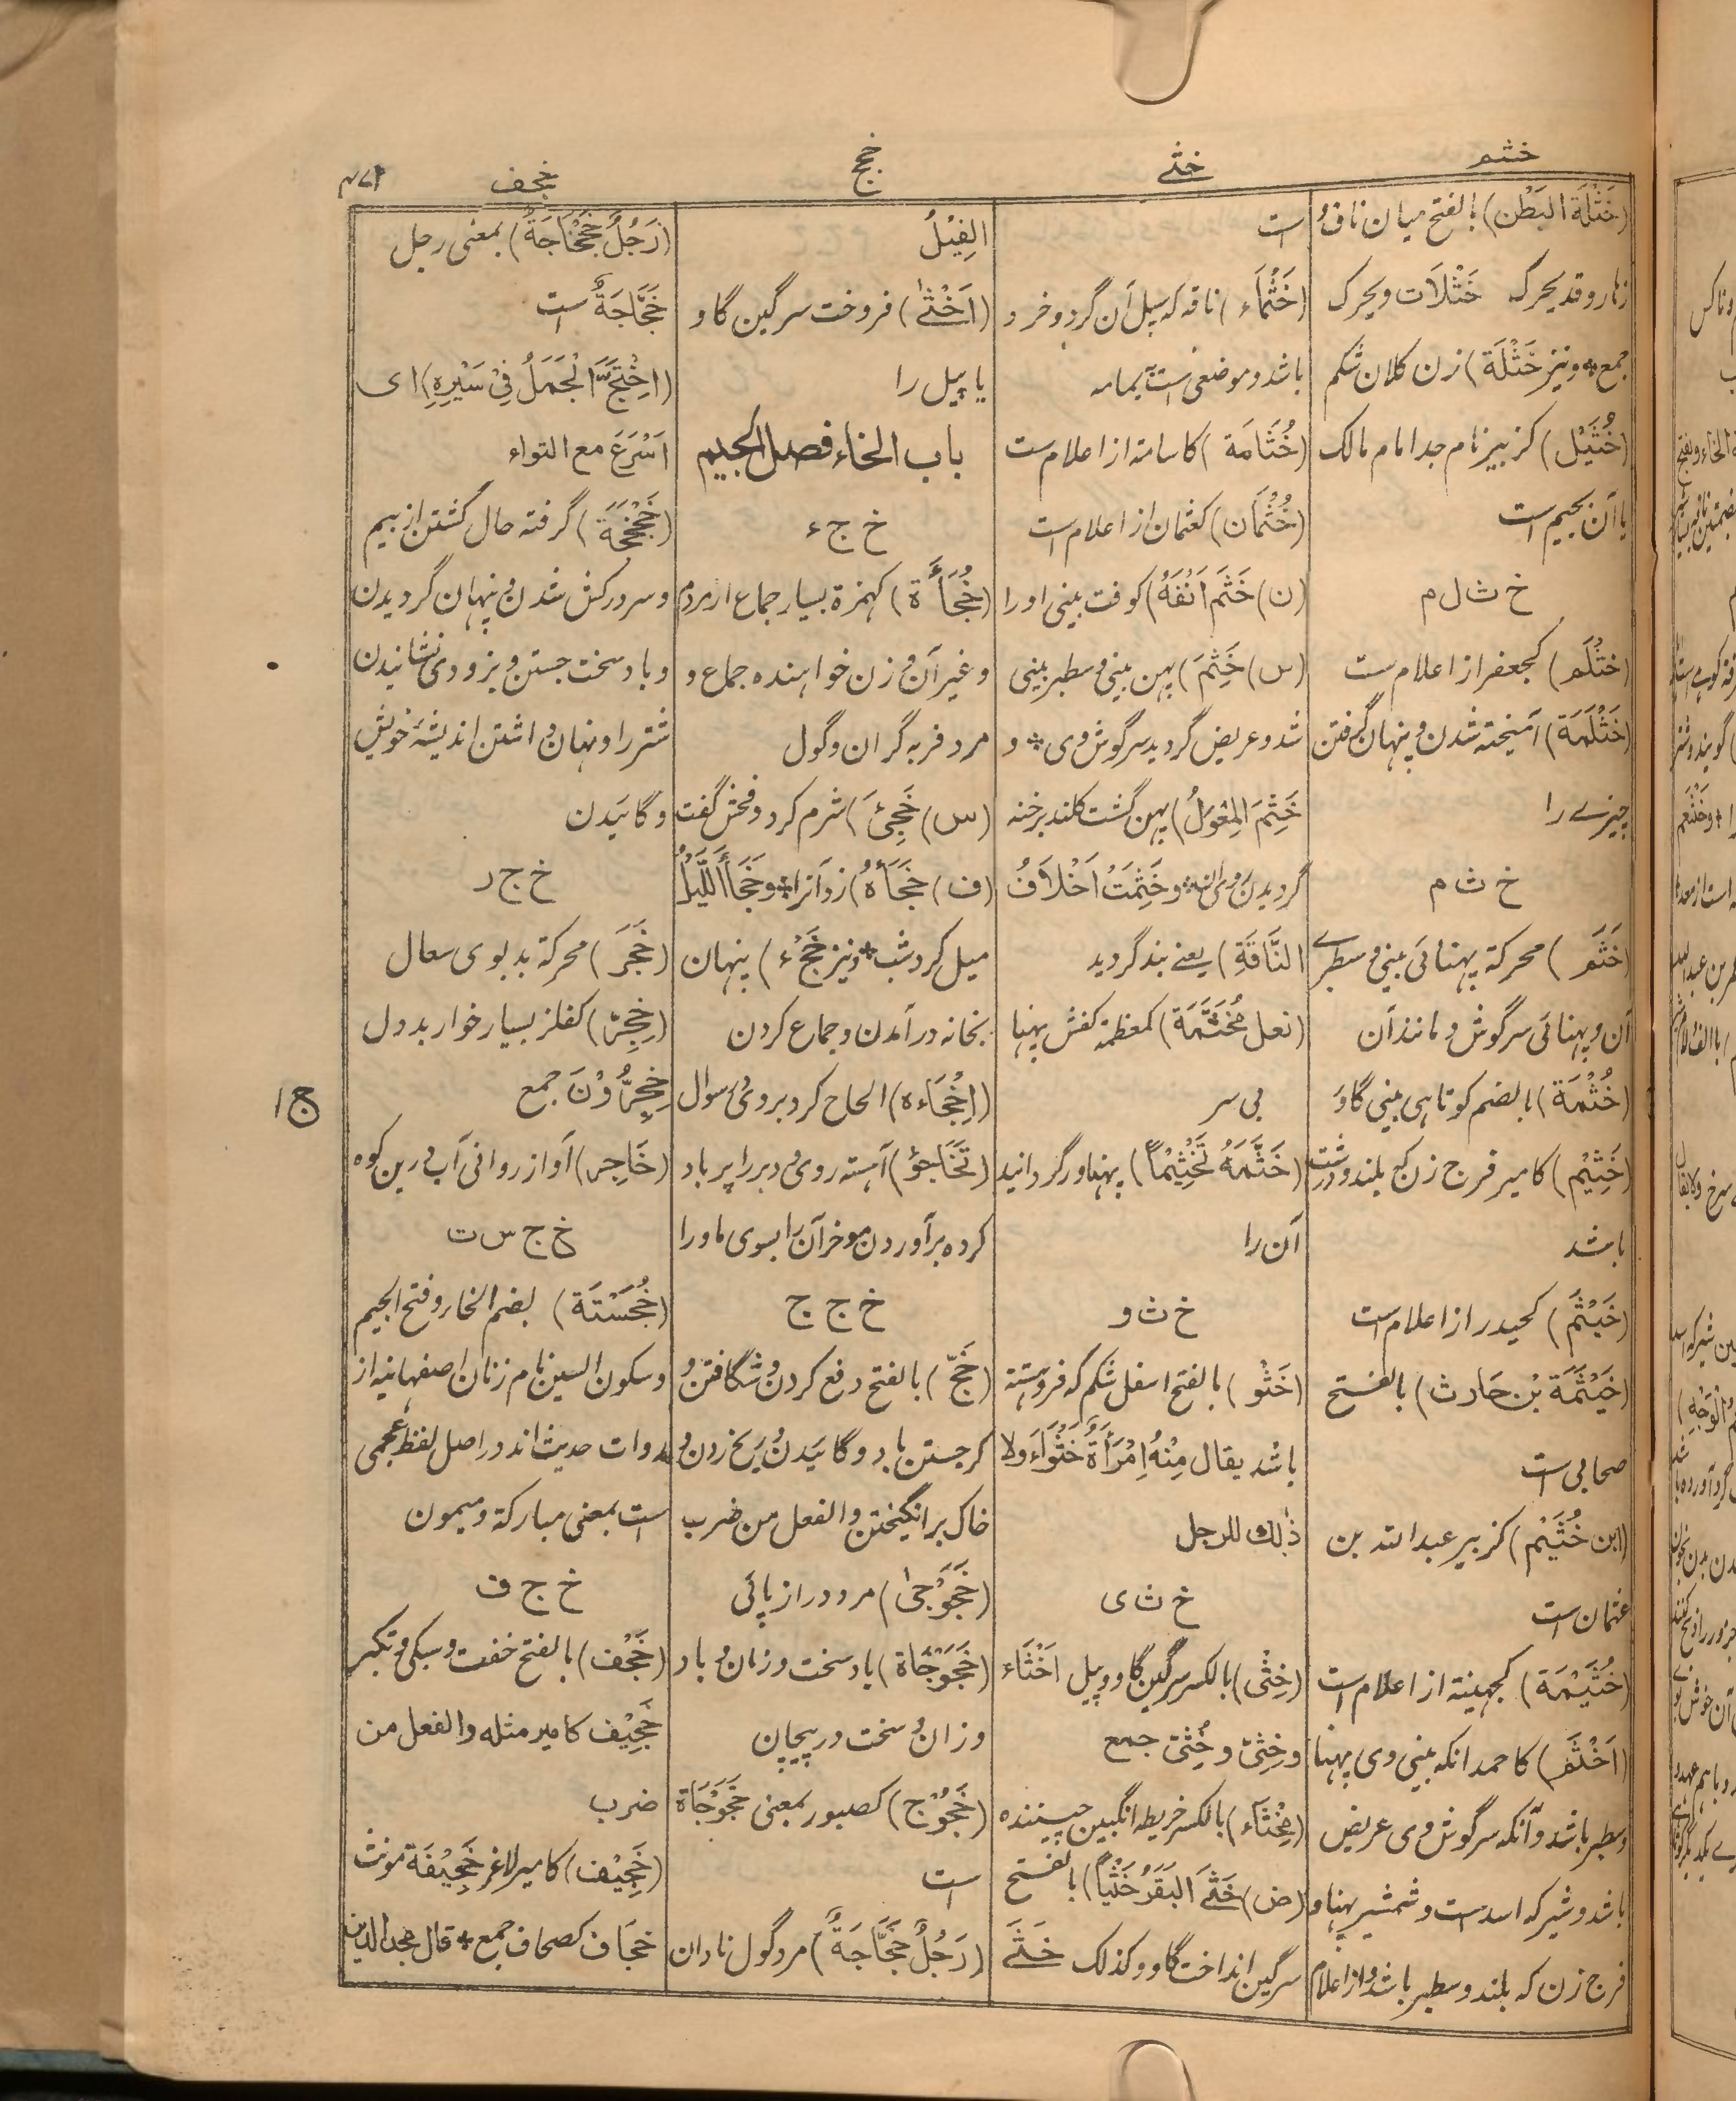 خثم
خثے
خجج
خجف
(خَثْلَة البَطْن) بالفتح میان ناف و
زهار و قد یحرک خَثْلَات و یحرک
جمع * و نیز خَثْلَة) زن کلان شکم
(خُثَیْل) کزبیر نام جد امام مالک
یا آن بجیم است
خ ث ل م
(خثْلَم) کجعفر از اعلام ست
(خَثْلَمَة) آمیخته شدن و پنهان گرفتن
چیزے را
خ ث م
(خَثَم) محرکة پهنائی بینی و سطبرے
آن و پهنائی سرگوش و مانند آن
(خُثْمَة) بالضم کوتاهی بینی گاو
(خَثِیْم) کامیر فرج زن که بلند و درشت
باشد
(خَیْثَم) کحیدر از اعلام ست
(خَیْثَمَة بْن حَارث) بالفتح
صحابی است
(ابن خُثَیْم) کزبیر عبدالله بن
عثمان است
(خُثَیْمَة) کجهینة از اعلام است
(اَخْثَم) کاحمد انکه بینی وی پهنا
و سطبر باشد و آنکه سرگوش وی عریض
باشد و شیر که اسد است و شمشیر پهنا و
فرج زن که بلند و سطبر باشد و از اعلام
است
(خَثْمَاء) ناقه که سپل آن گرد و خرد
باشد و موضعی ست بیمامه
(خُثَامَة) کاسامة از اعلام ست
(خُثْمَان) کعثمان از اعلام است
(ن) خَثَم اَنْفَهُ) کوفت بینی او را
(س) خَثِمَ) پهن بینی و سطبر بینی
شد و عریض گردید سرگوش وی * و
خَثِمَ المِعْوَلُ) پهن گشت کلند برخنه
گردیدن وی * و خَثِمَتْ اَخْلَافُ
النَّاقَةِ) یعنے بند گردید
(نعل مُخَثَّمَة) کمعظمة کفش پهنا
بی سر
(خَثَّمَهُ تَخْثِیْمًا) پهناور گردانید
آن را
خ ث و
(خَثْو) بالفتح اسفل شکم که فروهشته
باشد یقال مِنْهُ اِمْرَأَةٌ خَثْوَاء ولا
ذٰلك للرجل
خ ث ی
(خِثْی) بالکسر سرگین گاو و پیل اَخْثَاء
و خِثِیّ و خُثِیّ جمع
(مِخْثَاء) بالکسر خریطه انگبین چیننده
(ض) خَثَے البَقَرُ خَثْیًا) بالفتح
سرگین انداخت گاو و کذلک خَثَے
الفِیْلُ
(اَخْثٰے) فروخت سرگین گاو
یا پیل را
باب الخاء فصل الجیم
خ ج ء
(خُجَأَة) کهمزة بسیار جماع از مردم
و غیر آن و زن خواهنده جماع و
مرد فربه گران و گول
(س) خَجِئَ) شرم کرد و فحش گفت
(ف) خَجَأَهُ) زد آنرا * و خَجَأَ اللَّیْلُ
میل کرد شب * و نیز خَجْء) پنهان
بخانه در آمدن و جماع کردن
(اِخْجَاءه) الحاح کرد بر وی سوال
(تَخَاجُؤ) آهسته روی و دبر را پر باد
کرده برآوردن موخر آن را بسوی ماورا
خ ج ج
(خَجّ) بالفتح دفع کردن و شگافتن و
کر جستن باد و گائیدن و پیخ زدن و
خاک برانگیختن والفعل من ضرب
(خَجَوْجیٰ) مرد دراز پائی
(خَجَوْجَاة) باد سخت وزان و باد
وزان و سخت در پیچان
(خَجُوْج) کصبور بمعنی خَجَوْجَاة
است
(رَجُلٌ خَجَّاجَةٌ) مرد گول نادان
(رَجُلٌ خَجْخَاجَةٌ) بمعنی رجل
خَجَّاجَةٌ است
(اِخْتَجَّ الْجَمَلُ فِیْ سَیْرِهِ) ای
اَسْرَعَ مع التواء
(خَجْخَجَة) گرفته حال گشتن از بیم
و سرد رکش شدن و پنهان گردیدن
و باد سخت جستن و بزودی نشانیدن
شتر را و نهان داشتن اندیشهٔ خویش
و گائیدن
خ ج ر
(خَجَر) محرکة بدبوی سعال
(خِجِرّ) کفلز بسیار خوار بددل
خِجِرُّوْنَ جمع
(خَاجِر) آواز روانی آب در بن کوه
خ ج س ت
(خُجَسْتَة) بضم الخاء و فتح الجیم
و سکون السین نام زنان اصفهانیه از
روات حدیث اند در اصل لفظ عجمی
است بمعنی مبارکة و میمون
خ ج ف
(خَجْف) بالفتح خفت و سبکی و تکبر
خَجِیْف کامیر مثله والفعل من
ضرب
(خَجِیْف) کامیر لاغر خَجِیْفَة مونث
خجَاف کصحاف جمع * قال مجدالدین
ج ا